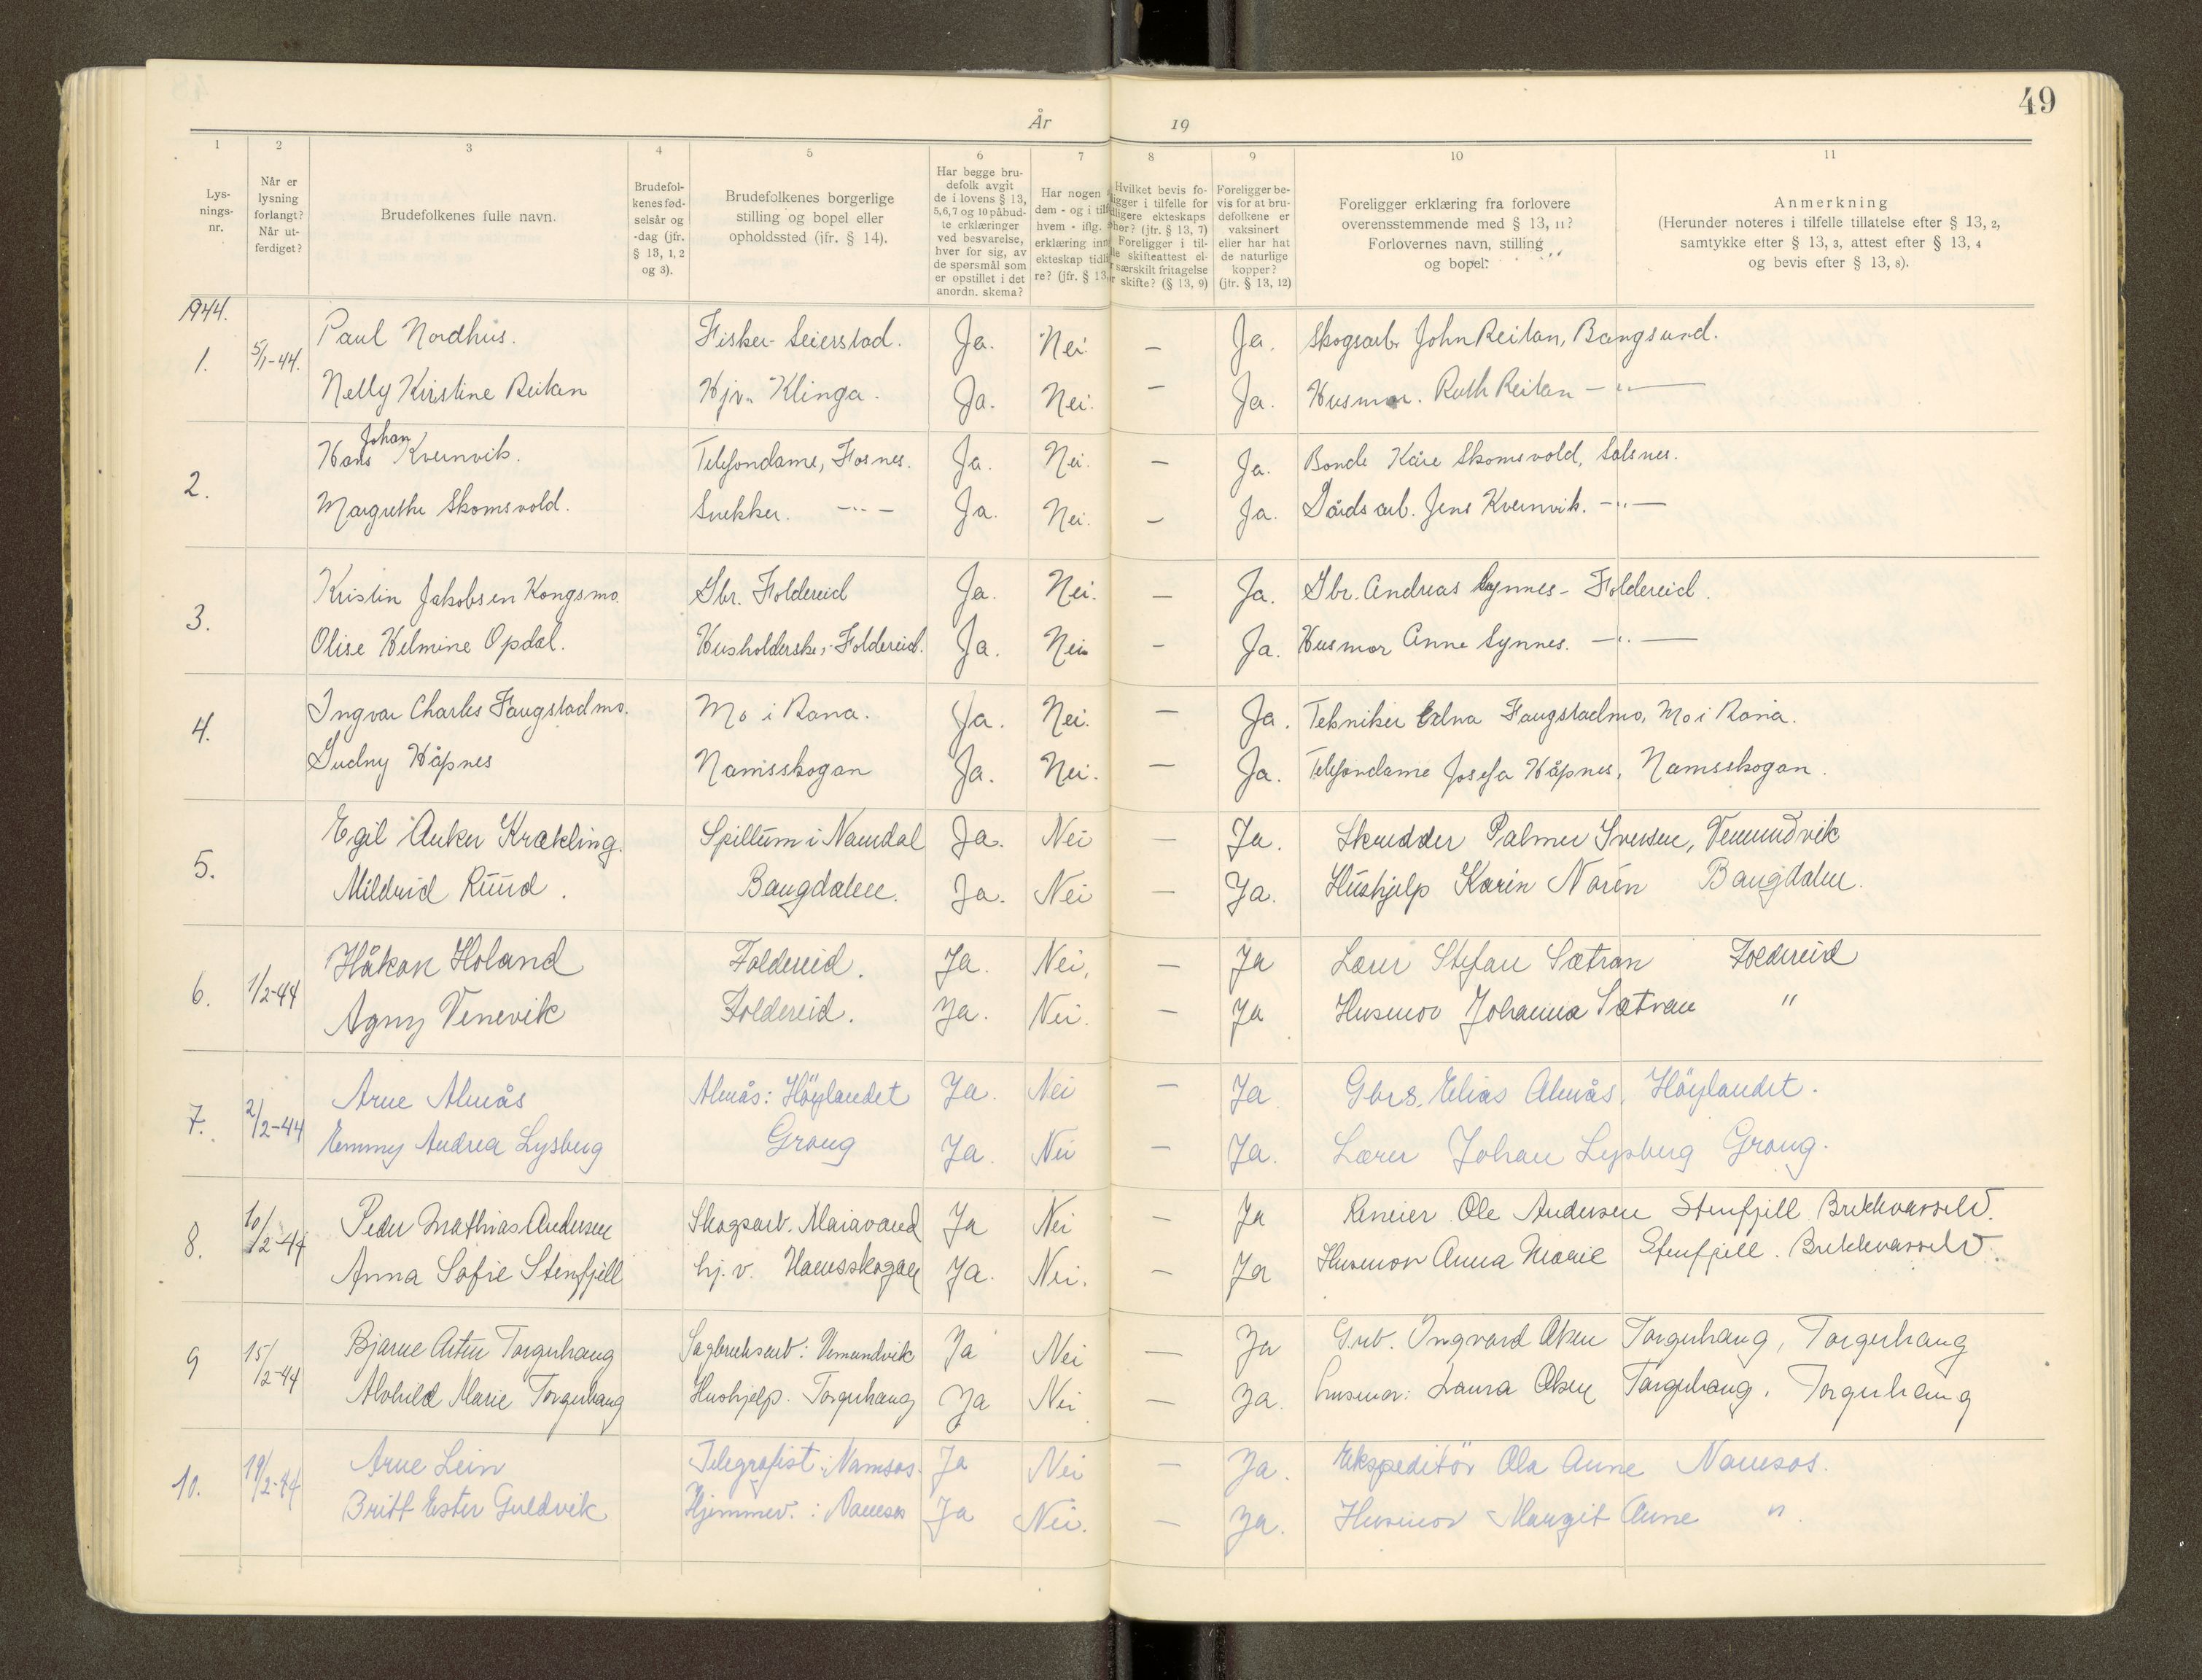 49
År 19
1 2 3 4 5 6 7 8 9 10 11
Lys-
nings-
nr.
Når er
lysning
forlangt?
Når ut-
ferdiget?
Brudefolkenes fulle navn.
Brudefol-
kenes fød-
selsår og
-dag (jfr.
§ 13, 1, 2
og 3).
Brudefolkenes borgerlige
stilling og bopel eller
opholdssted (jfr. § 14).
Har begge bru-
defolk avgit
de i lovens § 13,
5,6,7 og 10 påbud-
te erklæringer
ved besvarelse,
hver for sig, av
de spørsmål som
er opstillet i det
anordn. skema?
Har nogen
dem - og i tilf
hvem - iflg.
erklæring inn
ekteskap tidli
re? (jfr. § 13,
Hvilket bevis fo-
ligger i tilfelle for
tidligere ekteskaps
ophør? (jfr. § 13, 7)
Foreligger i til-
skifteattest el-
særskilt fritagelse
skifte? (§ 13, 9)
Foreligger be-
vis for at bru-
defolkene er
vaksinert
eller har hat
de naturlige
kopper?
(jfr. § 13, 12)
Foreligger erklæring fra forlovere
overensstemmende med § 13, 11?
Forlovernes navn, stilling
og bopel.
Anmerkning
(Herunder noteres i tilfelle tillatelse efter § 13, 2,
samtykke efter § 13, 3, attest efter § 13, 4
og bevis efter § 13, 8).
1944.
1. 5/1-44. Paul Nordhus. Fisker Seierstad. Ja. Nei. — Ja. Skogsarb. John Reitan, Bangsund.
Nelly Kristine Reitan Hjv. Klinga. Ja. Nei. — Ja. Husmor. Ruth Reitan —"—
2. Hans Johan Kvernvik. Telefondame, Fosnes. Ja. Nei. — Ja. Bonde Kåre Skomsvold, Salsnes.
Margrethe Skomsvold. Snekker. —"— Ja. Nei. — Ja. Gårdsarb. Jens Kvernvik. —"—
3. Kristin Jakobsen Kongsmo. Gbr. Foldereid Ja. Nei. — Ja. Gbr. Andreas Synnes - Foldereid.
Olise Helmine Opdal. Husholderske, Foldereid. Ja. Nei — Ja. Husmor Anne Synnes. —"—
4. Ingvar Charles Faugstadmo. Mo i Rana. Ja. Nei. — Ja. Tekniker Edna Faugstadmo, Mo i Rana.
Gudny Håpnes Namsskogan Ja. Nei. — Ja. Telefondame Josefa Håpnes, Namsskogan.
5. Egil Anker Krækling. Spillum i Namdal Ja. Nei — Ja. Skredder Palmer Iversen, Vemundvik
Mildrid Ruud. Bangdalen. Ja. Nei — Ja. Hushjelp Karin Norén Bangdalen.
6. 1/2-44 Håkon Holand Foldereid. Ja. Nei, — Ja Lærer Stefan Sætran Foldereid
Agny Venevik Foldereid. Ja. Nei. — Ja Husmor Johanna Sætran "
7. 2/2-44 Arne Almås Almås: Höylandet Ja. Nei — Ja Gbrs. Elias Almås, Höylandet.
Emmy Andrea Lysberg Grong Ja. Nei — Ja. Lærer Johan Lysberg Grong.
8. 10/2-44 Peder Mathias Andersen Skogsarb. Maiavand Ja Nei — Ja Reneier Ole Andersen Stenfjell Brekkvasselv.
Anna Sofie Stenfjell hj.v. Namsskogan Ja. Nei. — Ja Husmor Anna Marie Stenfjell. Brekkvasselv.
9 15/2-44 Bjarne Artur Torgerhaug Sagbruksarb: Vemundvik Ja Nei — Ja Grb. Ingvard Olsen Torgerhaug, Torgerhaug
Alvhild Marie Torgerhaug Hushjelp. Torgerhaug Ja Nei — Ja. husmor: Laura Olsen Torgerhaug. Torgerhaug
10. 19/2-44 Arne Lein Telegrafist: Namsos. Ja Nei — Ja. Ekspeditör Ola Aune Namsos.
Britt Ester Guldvik Hjemmev.: Namsos Ja Nei. — Ja. Husmor Margit Aune "